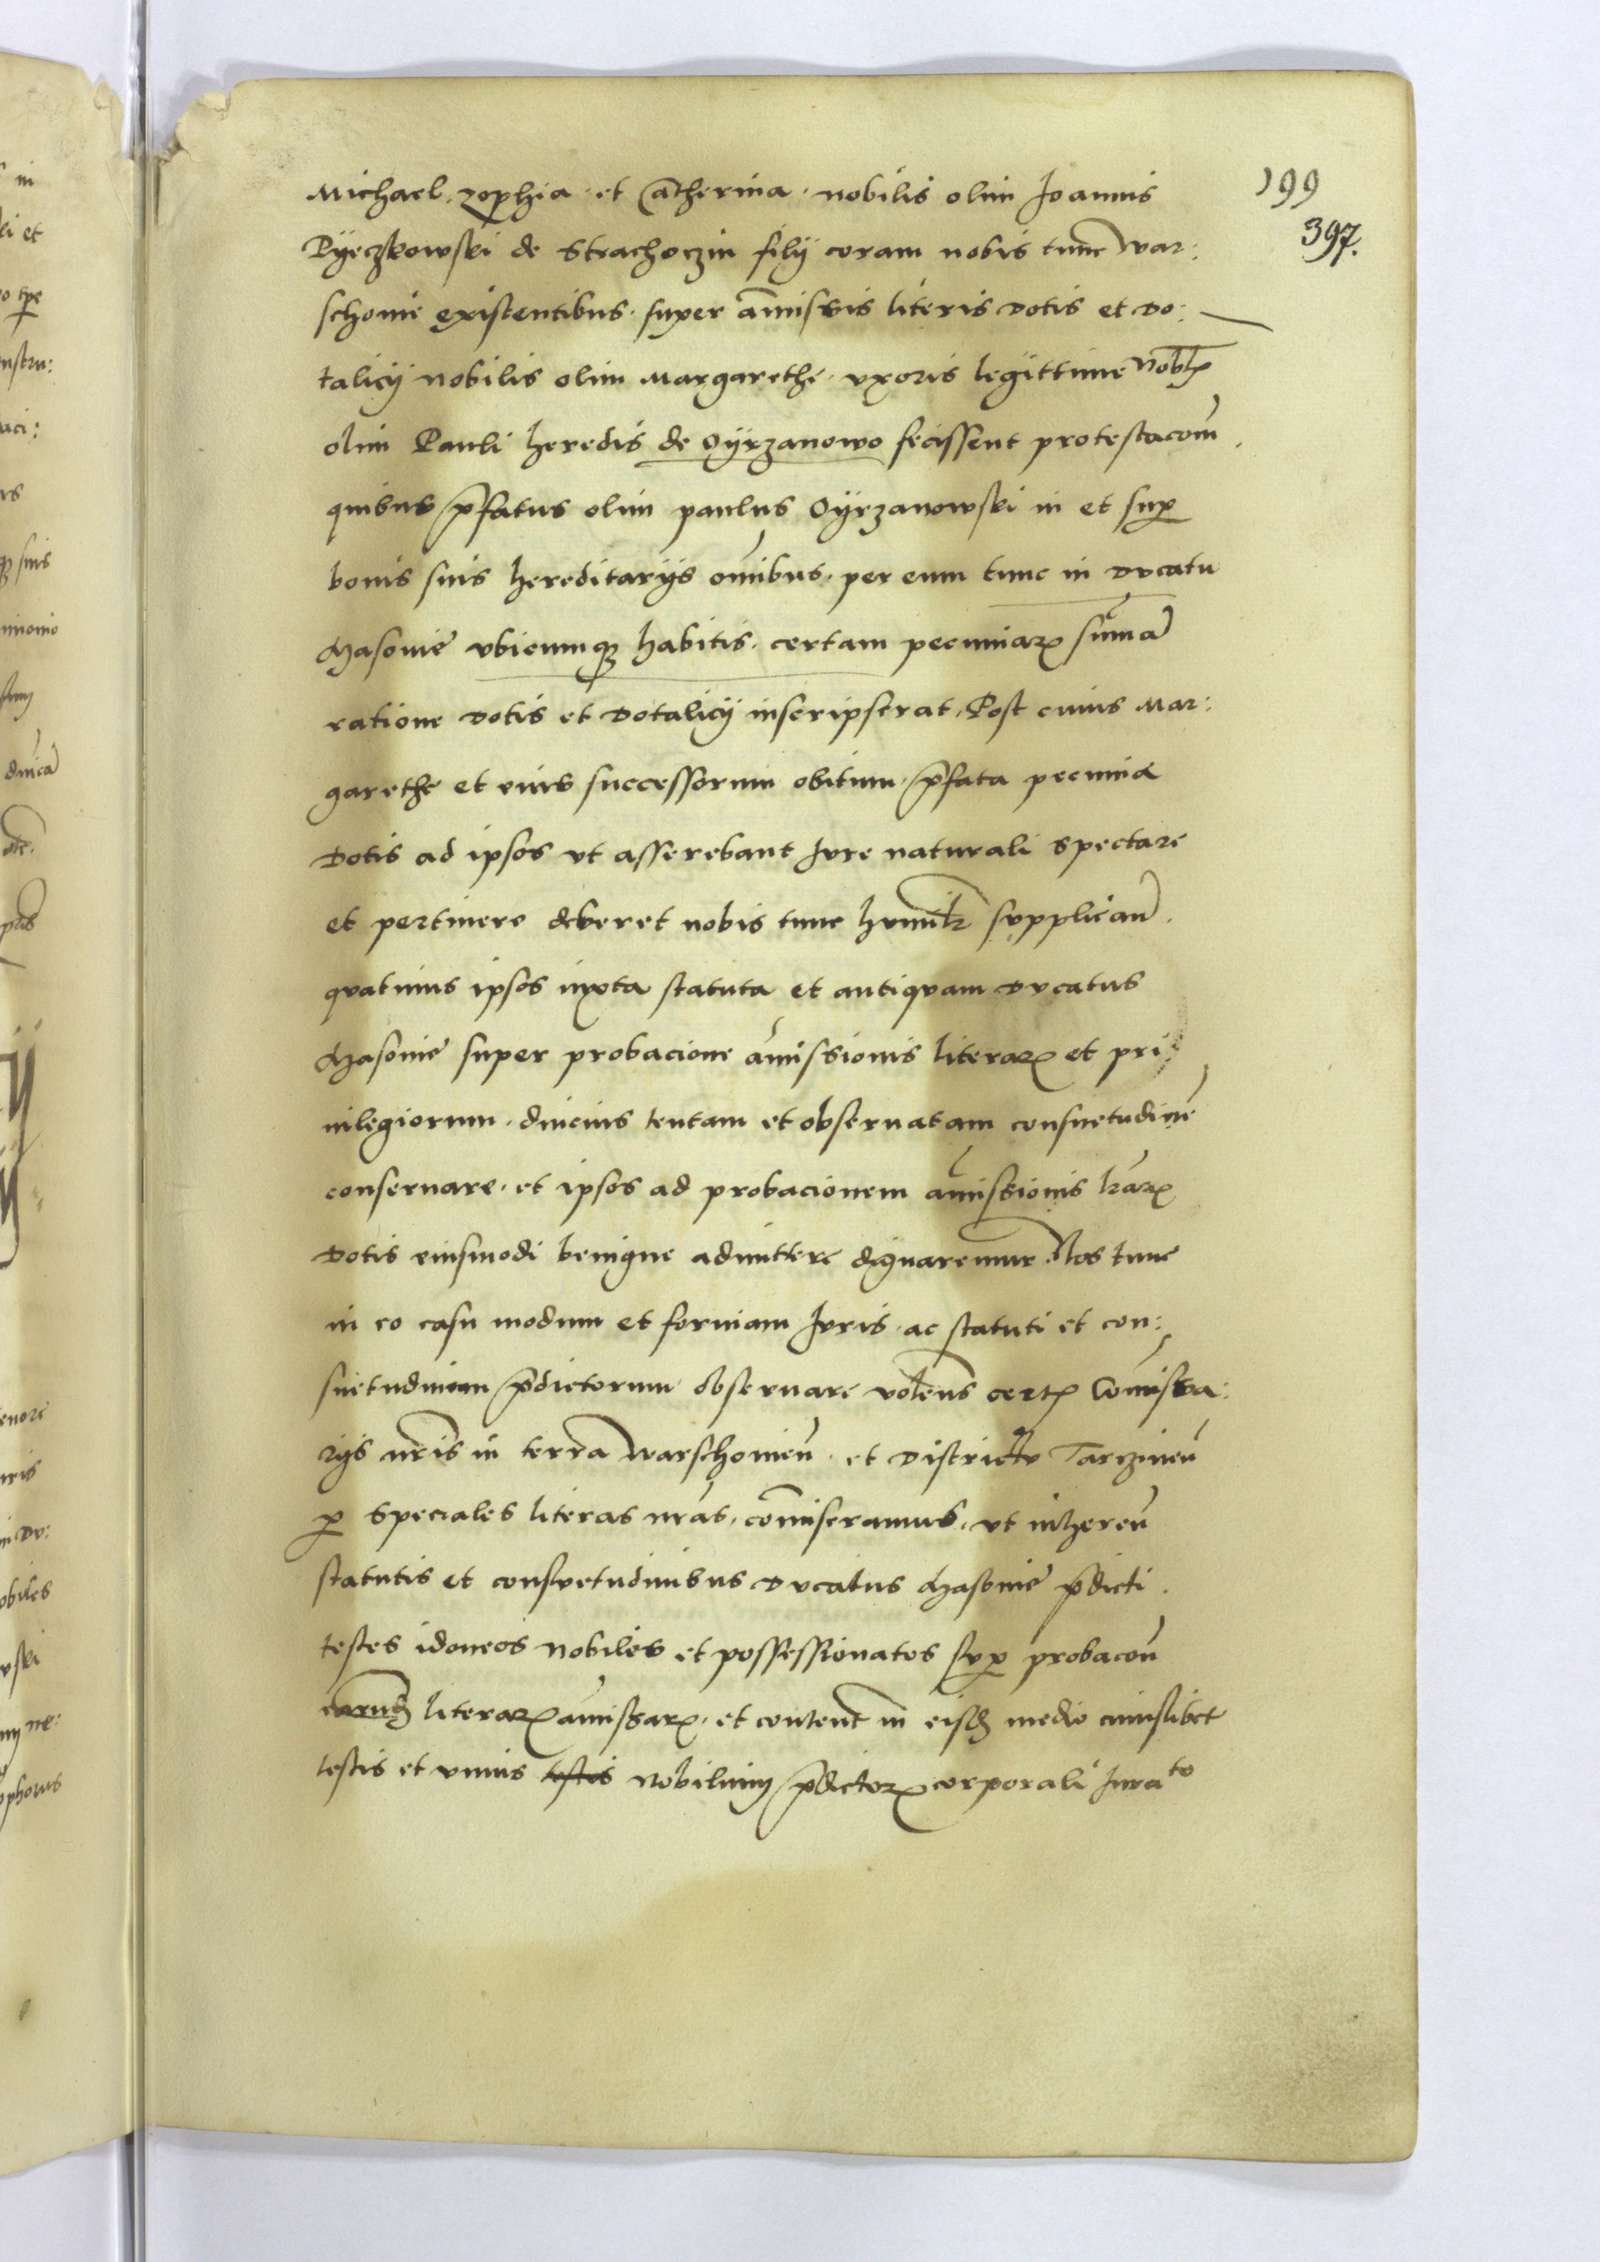 199
397.
Michael, Zophia et Catherina nobilis olim Joannis
Pyeczkowski de Strachoczin filij coram nobis tunc War:
schovie existentibus super amissis literis dotis et do:
talicij nobilis olim Margarethe uxoris legittime nobil
olim Pauli heredis de Oyrzanowo fecissent protestacom
quibus pfatus olim Paulus Oyrzanowski in et sup
bonis suis hereditarijs omibus per eum tunc in ducatu
Masovie ubicumq habitis certam pecuniar summa
ratione dotis et dotalicij inscripserat. Post cuius Mar:
garethe et eius successorum obitum pfata pecunia
dotis ad ipsos ut asserebant jure naturali spectare
et pertinere deberet nobis tunc humilr supplican
quatinus ipsos iuxta statuta et antiquam ducatus
Masovie super probacione amissionis literar et pri:
vilegiorum diucius tentam et observatam consuetudine
conservare et ipsos ad probacionem amissionis lrar
dotis eiusmodi benigne admittere dignaremur. Nos tunc
in eo casu modum et formam Juris ac statuti et con:
suetudinum pdictorum observare volens certis Comissa:
rijs nris in terra Warschovien et districtu Tarczinen
p speciales literas nras comiseramus, ut inheren
statutis et consuetudinibus ducatus Masovie pdicti
testes idoneos nobiles et possessionatos sup probacon
earund literar amissar et content in eisd medio cuiuslibet
testis et unius testis nobilium pdictor corporali jurato